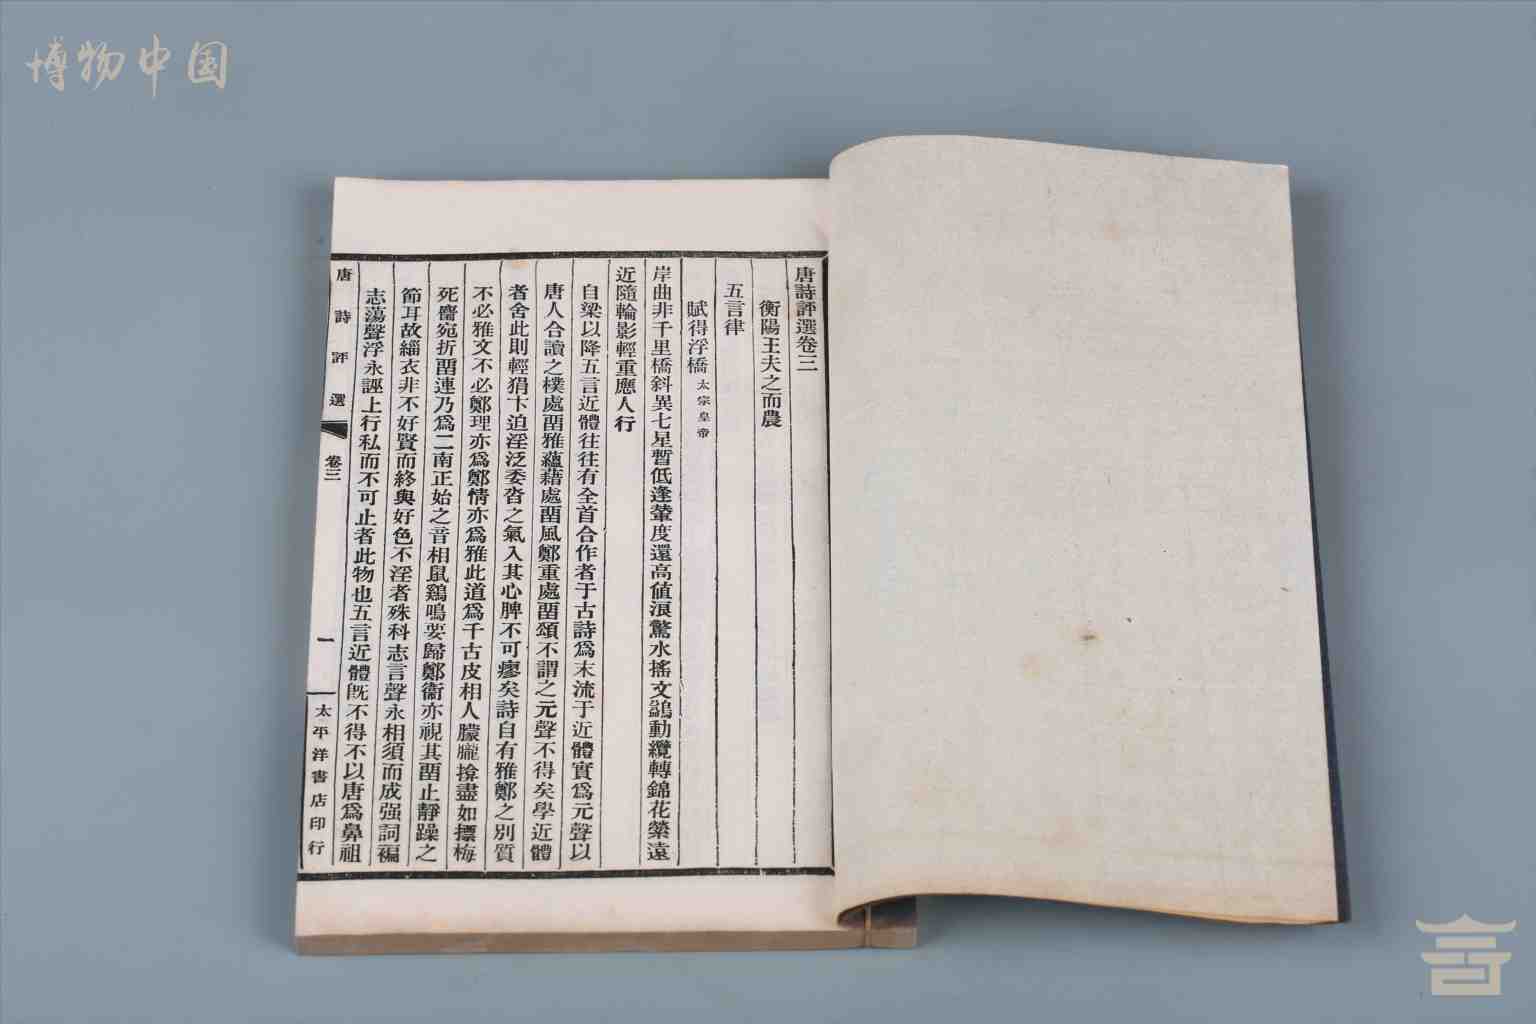 博物中国
唐詩評選卷三
衡陽王夫之而農
五言律
賦得浮橋 太宗皇帝
岸曲非千里橋斜異七星暫低逢輦度還高値浪驚水搖文鷁動纜轉錦花縈遠
近隨輪影輕重應人行
自梁以降五言近體往往有全首合作者于古詩爲末流于近體實爲元聲以
唐人合讀之樸處畱雅蘊藉處畱風鄭重處畱頌不謂之元聲不得矣學近體
者舍此則輕狷卞迫淫泛委沓之氣入其心脾不可瘳矣詩自有雅鄭之別質
不必雅文不必鄭理亦爲鄭情亦爲雅此道爲千古皮相人朦朧揜盡如摽梅
死麕宛折畱連乃爲二南正始之音相鼠鷄鳴要歸鄭衞亦視其畱止靜躁之
節耳故緇衣非不好賢而終與好色不淫者殊科志言聲永相須而成强詞褊
志蕩聲浮永誣上行私而不可止者此物也五言近體旣不得不以唐爲鼻祖
唐詩評選
卷三
一
太平洋書店印行